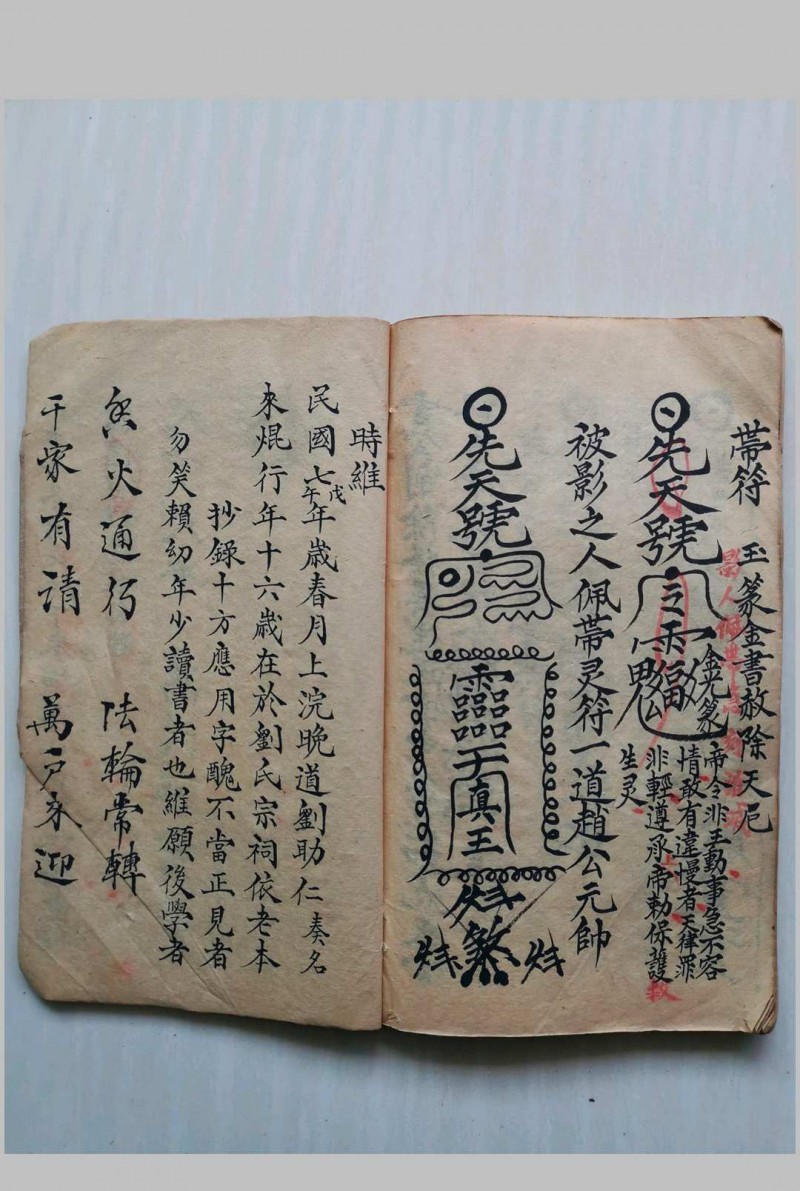 帶符 玉篆金書赦除天尼
先天號
金光篆
帝令非王動事急不容
情敢有違慢者天律罪
非輕遵承帝勅保護
生灵
被影之人佩帶灵符一道趙公元帥
先天號
靈
真王
煞
時維
民國七戊午年歲春月上浣晚道劉助仁奏名
來焜行年十六歲在於劉氏宗祠依老本
抄錄十方應用字醜不當正見者
勿笑賴幼年少讀書者也維願後學者
香火通行 法輪常轉
千家有請 萬戶來迎